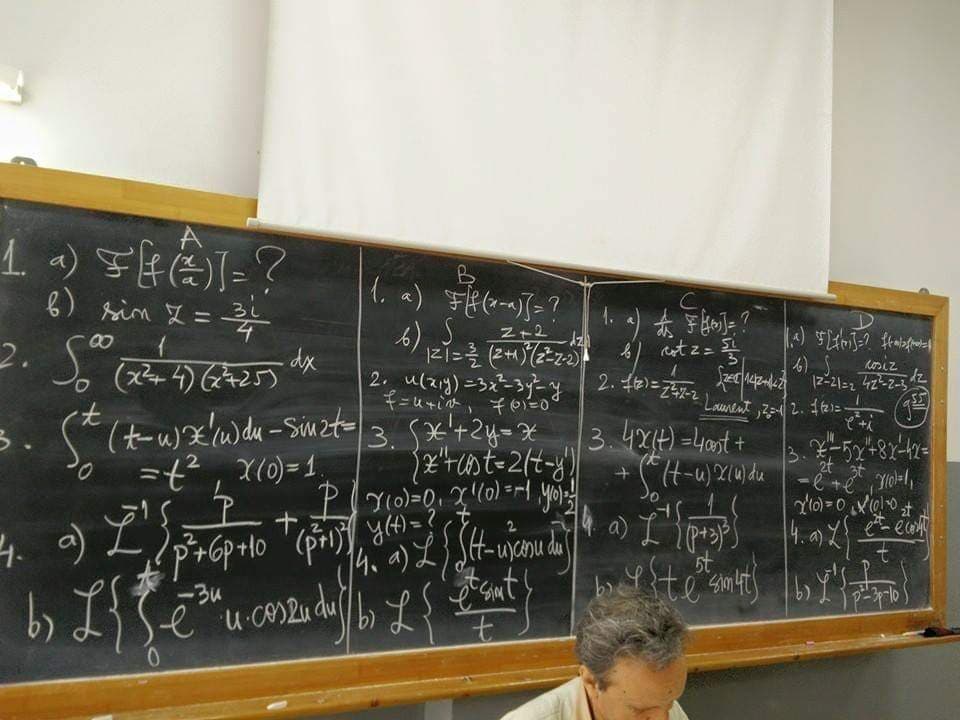 A
1. a) F[f(x/a)] = ?
b) sin z = 3i/4
2. ∫₀^∞ 1/((x²+4)(x²+25)) dx
3. ∫₀^t (t-u)x'(u)du - sin2t =
= t² x(0)=1.
4. a) L⁻¹{p/(p²+6p+10) + p/(p²+1)²}
b) L{∫₀^t e^(-3u) u·cos2u du}
B
1. a) F[f(x-a)] = ?
b) ∫_{|z|=3/2} (z+2)/((z+1)²(z²-z-2)) dz
2. u(x,y) = 3x²-3y²-y
f=u+iv, f(0)=0
3. {x'+2y=x
{x''+cost=2(t-y')
x(0)=0, x'(0)=-1, y(0)=1/2
y(t)=?
4. a) L{∫₀^t (t-u)² cosu du}
b) L{e^t sint/t}
C
1. a) d/ds F[f(x)] = ?
b) cot z = 5i/3
2. f(z) = 1/(z²-z-2)
Laurent,
3. 4x(t) = 4cost +
+ ∫₀^t (t-u)x(u)du
4. a) L⁻¹{1/(p+3)³}
b) L{t e^(5t) sin4t}
D
1. a) F[f'(x)] = ?
b) ∫_{|z-2|=2} cosiz/(4z²-z-3) dz
9⁵⁵
2. f(z) = 1/(e^z+i)
3. x'''-5x''+8x'-4x=
= e^(2t)+e^(3t), x(0)=1,
x'(0)=0, x''(0)=0
4. a) L{(e^(2t)-e^t cos4t)/t}
b) L⁻¹{p/(p²-3p-10)}